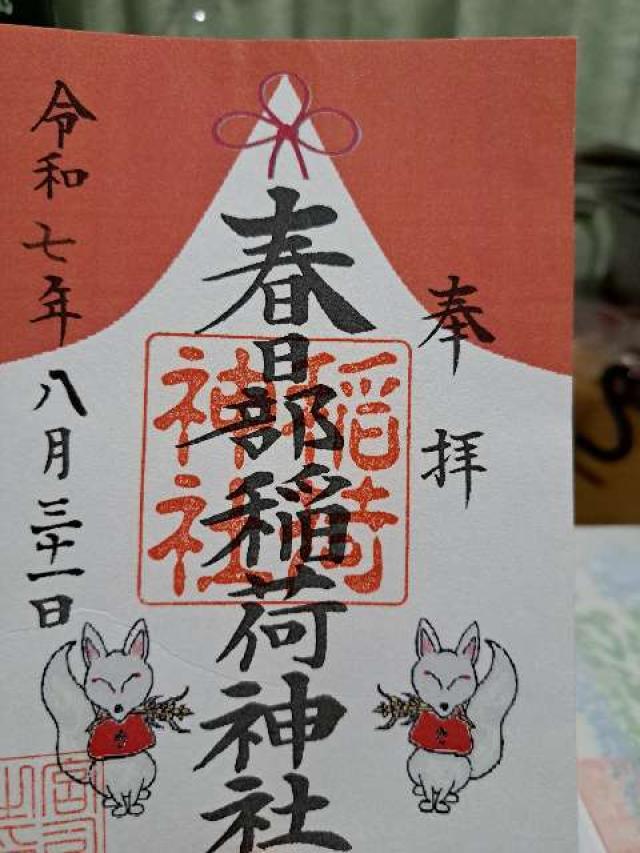 奉拝
春日部稲荷神社
稲荷
神社
令和七年八月三十一日